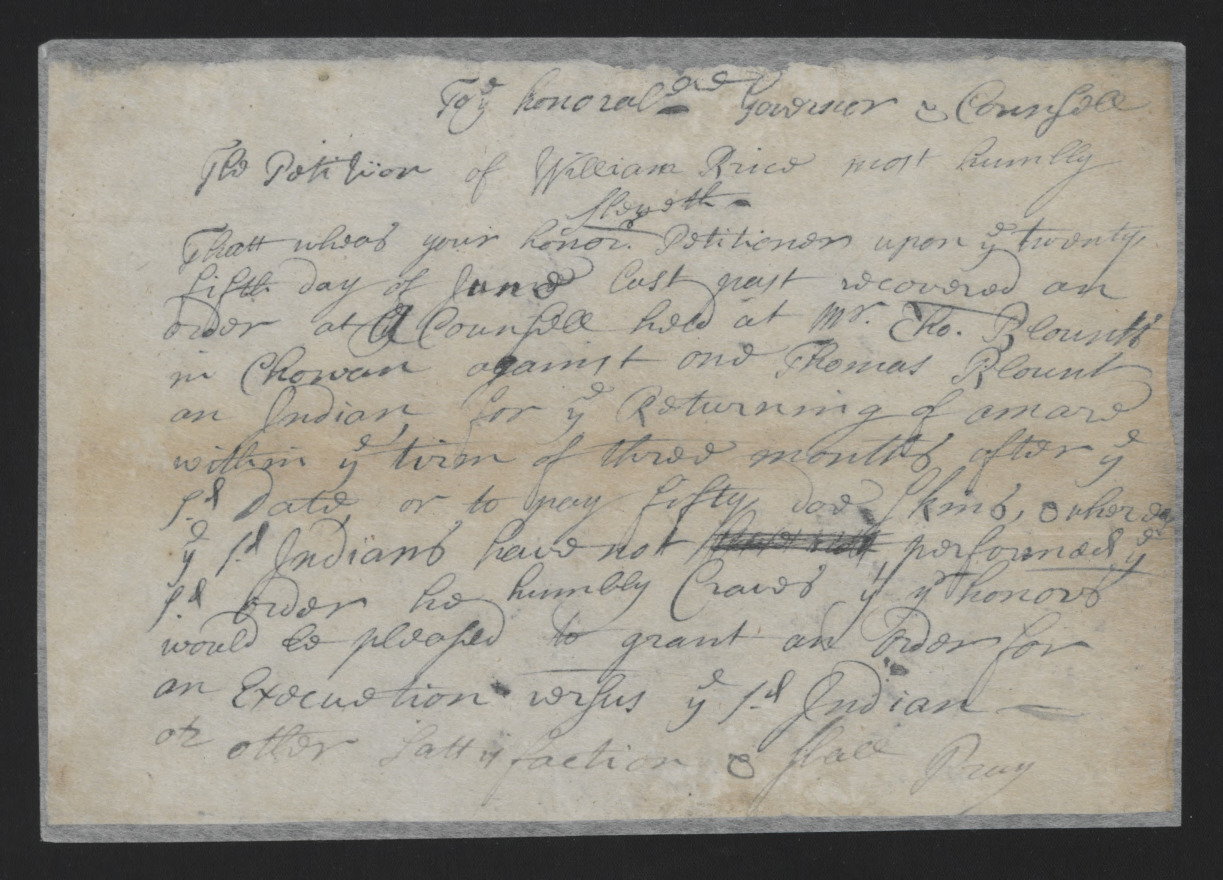 To yͤ honoralᵇˡᵉ Governor & Counsell
The Petition of William Rice most humbly
sheweth
Thatt wheas your honorˢ Petitioner upon yͤ twenty
fifth day of June last past recovered an
order at a Counsell held at Mr. Tho. Blounts
in Chowan against one Thomas Blount
an Indian, for yͤ Returning of a mare
within yͤ tirm of three months after yͤ
sᵈ date or to pay fifty doe skins, & whereas
yͤ sᵈ Indians have not performed yͤ
sᵈ order he humbly Craves yᵗ yʳ honors
would be pleased to grant an order for
an Execuetion versus yͤ sᵈ Indian
or other sattisfaction & shall Pray